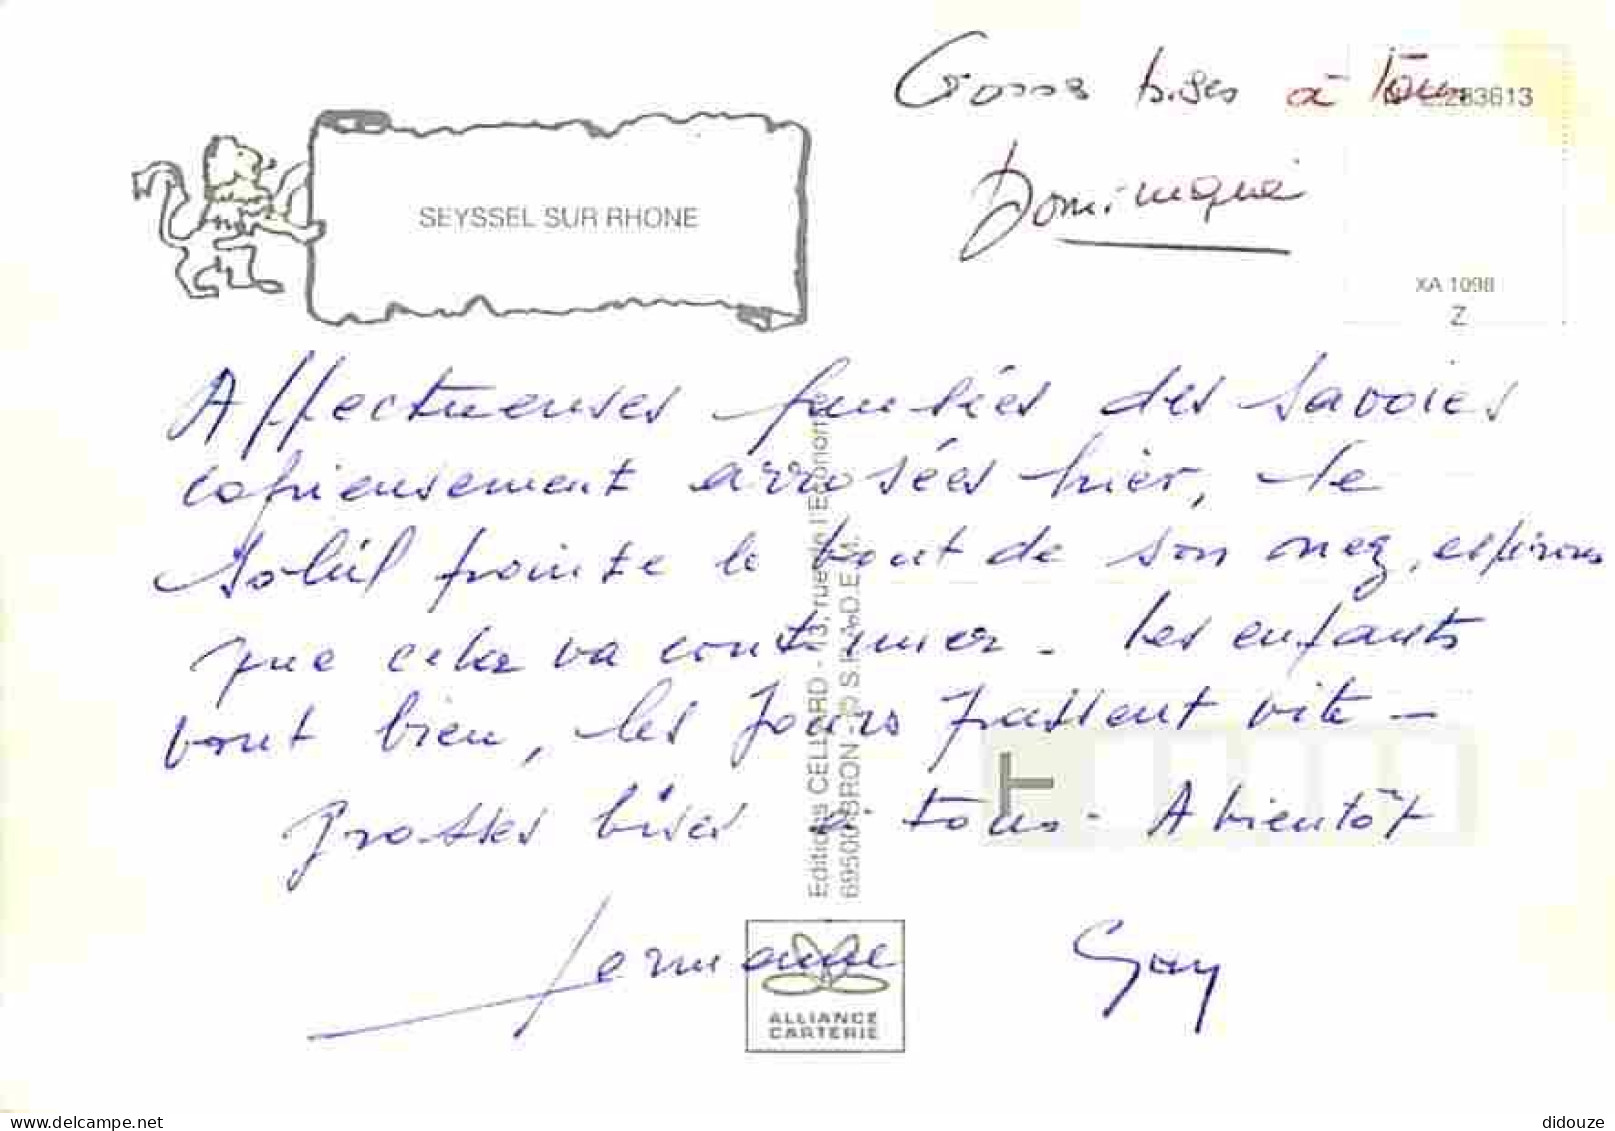 Grosses bises à tous
Dominique
E 283613
SEYSSEL SUR RHONE
XA 1098
Z
Affectueuses pensées des Savoies
copieusement arrosées hier, le
soleil pointe le bout de son nez, espérons
que cela va continuer - Les enfants
vont bien, les jours passent vite -
grosses bises à tous - A bientôt
Germaine Guy
Editions CELLARD - 13, rue de l'Econom
69500 BRON - ® S.P.A.D.E.M.
ALLIANCE
CARTERIE
delcampe.net
didouze